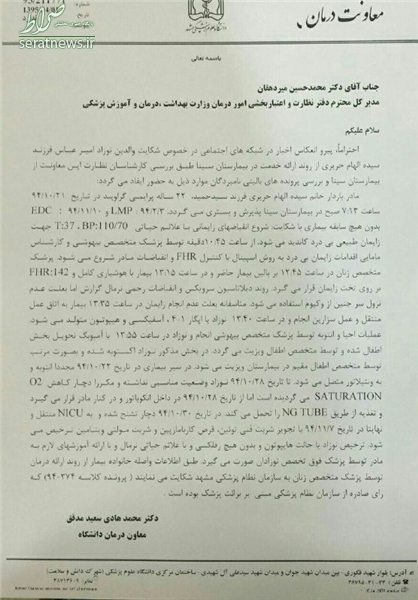 معاونت درمان
شماره
تاریخ
صراط
seratnews.ir
باسمه تعالی
جناب آقای دکتر محمدحسین میردهقان
مدیر کل محترم دفتر نظارت و اعتباربخشی امور درمان وزارت بهداشت ،درمان و آموزش پزشکی
سلام علیکم
احتراماً، پیرو انعکاس اخبار در شبکه های اجتماعی در خصوص شکایت والدین نوزاد امیر عباس فرزند
سیده الهام حریری از روند ارائه خدمت در بیمارستان سینا طبق بررسی کارشناسان نظارت این معاونت از
بیمارستان سینا و بررسی پرونده های بالینی نامبردگان موارد ذیل به حضور ایفاد می گردد:
مادر باردار خانم سیده الهام حریری فرزند سیدحمید، ۲۲ ساله پرایمی گراوید در تاریخ ۹۴/۱۰/۲۱
ساعت ۷:۱۳ صبح در بیمارستان سینا پذیرش و بستری می گردد. LMP : ۹۴/۲/۳ و EDC : ۹۴/۱۱/۱۰
بدون هیچ سابقه بیماری با شکایت: شروع انقباضهای زایمانی با علائم حیاتی T:37 ، BP:110/70 جهت
زایمان طبیعی بی درد کاندید می شود. از ساعت ۱۰:۴۵دقیقه توسط پزشک متخصص بیهوشی و کارشناس
مامایی اقدامات زایمان بی درد به روش اسپینال با کنترل FHR و انقباضات مادر شروع می شود. پزشک
متخصص زنان در ساعت ۱۲:۴۵ بر بالین بیمار حاضر و در ساعت ۱۳:۱۵ بیمار با هوشیاری کامل و FHR:142
بر روی تخت زایمان قرار می گیرد. روند دیلاتاسیون سرویکس و انقباضات رحمی نرمال گزارش اما بعلت عدم
نزول سر جنین از وکیوم استفاده می شود. متاسفانه بعلت عدم انجام زایمان در ساعت ۱۳:۳۵ بیمار به اتاق عمل
منتقل و عمل سزارین انجام و در ساعت ۱۳:۴۰ نوزاد با آپگار ۴،۰۱ آسفیکسی و هیپوتون متولد می شود.
عملیات احیا و انتوبه توسط پزشک متخصص بیهوشی انجام و نوزاد در ساعت ۱۳:۵۵ با آمبوبگ تحویل بخش
اطفال شده و توسط متخصص اطفال ویزیت می گردد. در بخش مذکور نوزاد اکستوبه شده و بصورت مرتب
توسط متخصص اطفال مقیم در بیمارستان ویزیت می شود. در سیر بیماری در تاریخ ۹۴/۱۰/۲۲ مجددا انتوبه و
به ونتیلاتور متصل می شود. تا تاریخ ۹۴/۱۰/۲۸ نوزاد وضعیت مناسبی نداشته و مکررا دچار کاهش O2
SATURATION می گردیده است اما از تاریخ ۹۴/۱۰/۲۸ در داخل انکوباتور و در کنار مادر قرار می گیرد
و تغذیه از طریق NG TUBE را تحمل می کند. در تاریخ ۹۴/۱۰/۳۰ دچار تشنج شده و به NICU منتقل و
نهایتا در تاریخ ۹۴/۱۱/۷ با تجویز شربت فنی توئین، قرص کاربامازپین و شربت مولتی ویتامین ترخیص می
شود. ترخیص نوزاد با حالت هایپوتون و بدون هیچ رفلکسی و با علائم حیاتی نرمال و با ارائه آموزشهای لازم به
مادر توسط پزشک فوق تخصص نوزادان صورت می گیرد. طبق اطلاعات واصله خانواده بیمار از روند ارائه درمان
توسط پزشک متخصص زنان به سازمان نظام پزشکی مشهد شکایت می نمایند ( پرونده کلاسه ۳۷۴-۹۴) که
رای صادره از سازمان نظام پزشکی مبنی بر برائت پزشک بوده است .
دکتر محمد هادی سعید مدقق
معاون درمان دانشگاه
آدرس: بلوار شهید فکوری - بین میدان شهید جوان و میدان شهید سیدعلی آل شهیدی - ساختمان مرکزی دانشگاه علوم پزشکی (شهرک دانش و سلامت)
تلفن: